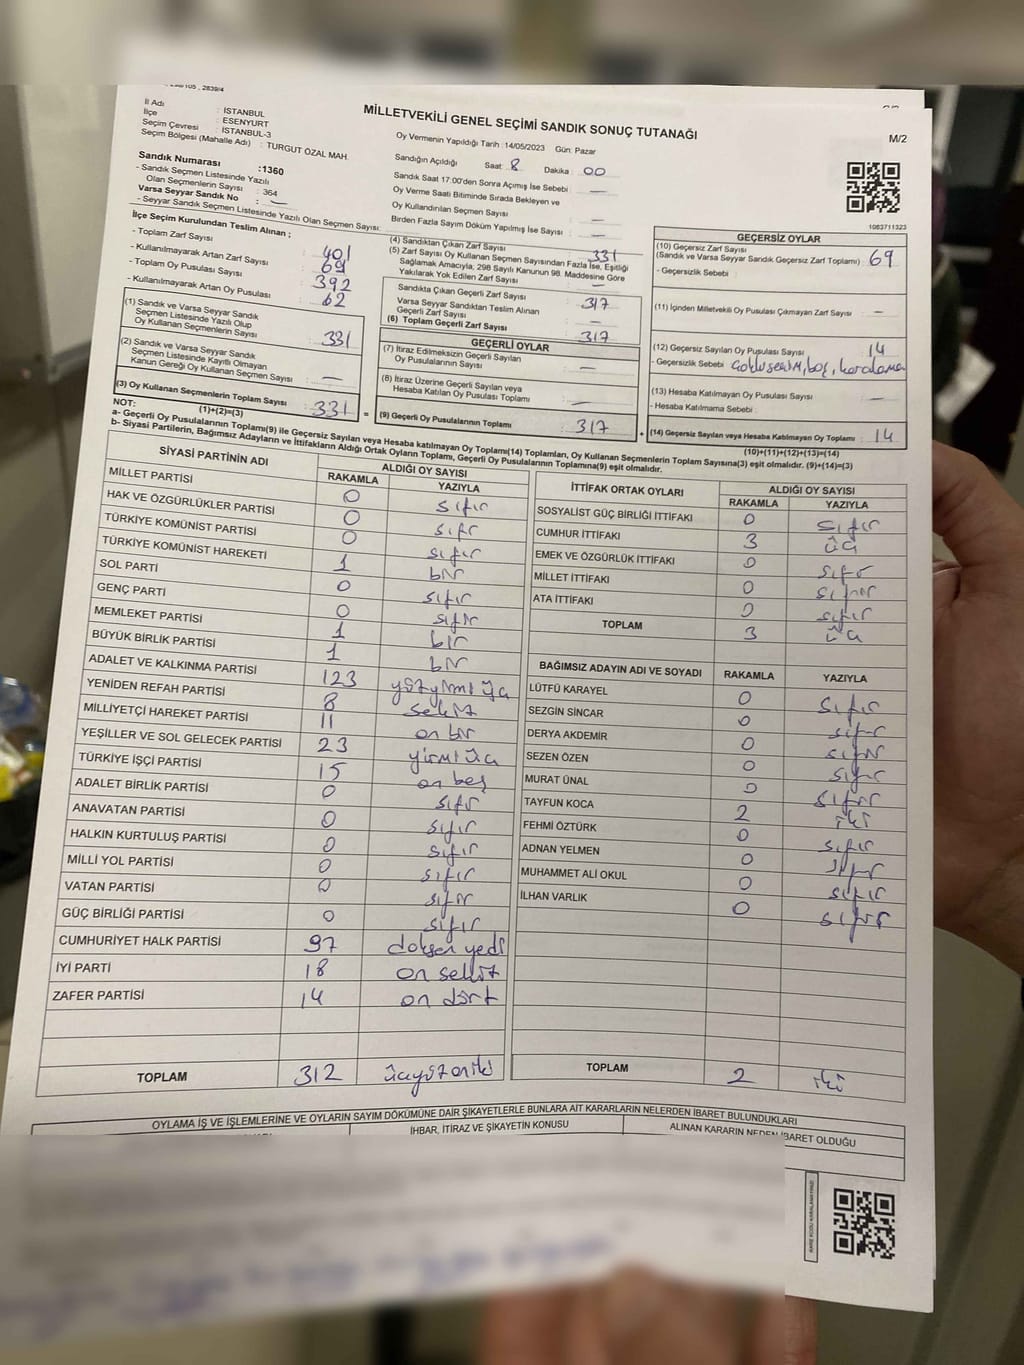 2839/4
İl Adı : İSTANBUL
İlçe : ESENYURT
Seçim Çevresi : İSTANBUL-3
Seçim Bölgesi (Mahalle Adı) : TURGUT ÖZAL MAH.
MİLLETVEKİLİ GENEL SEÇİMİ SANDIK SONUÇ TUTANAĞI
M/2
Oy Vermenin Yapıldığı Tarih : 14/05/2023 Gün: Pazar
Sandığın Açıldığı Saat : 8 Dakika : 00
Sandık Saat 17:00'den Sonra Açımış İse Sebebi : —
Oy Verme Saati Bitiminde Sırada Bekleyen ve
Oy Kullandırılan Seçmen Sayısı : —
Birden Fazla Sayım Döküm Yapılmış İse Sayısı : —
1083711323
Sandık Numarası :1360
- Sandık Seçmen Listesinde Yazılı
Olan Seçmenlerin Sayısı : 364
Varsa Seyyar Sandık No : —
- Seyyar Sandık Seçmen Listesinde Yazılı Olan Seçmen Sayısı:
İlçe Seçim Kurulundan Teslim Alınan ;
- Toplam Zarf Sayısı : 401
- Kullanılmayarak Artan Zarf Sayısı : 69
- Toplam Oy Pusulası Sayısı : 392
- Kullanılmayarak Artan Oy Pusulası : 62
(1) Sandık ve Varsa Seyyar Sandık
Seçmen Listesinde Yazılı Olup
Oy Kullanan Seçmenlerin Sayısı : 331
(2) Sandık ve Varsa Seyyar Sandık
Seçmen Listesinde Kayıtlı Olmayan
Kanun Gereği Oy Kullanan Seçmen Sayısı : —
(3) Oy Kullanan Seçmenlerin Toplam Sayısı : 331 =
(1)+(2)=(3)
(4) Sandıktan Çıkan Zarf Sayısı : 331
(5) Zarf Sayısı Oy Kullanan Seçmen Sayısından Fazla İse, Eşitliği
Sağlamak Amacıyla, 298 Sayılı Kanunun 98. Maddesine Göre
Yakılarak Yok Edilen Zarf Sayısı : —
Sandıkta Çıkan Geçerli Zarf Sayısı : 317
Varsa Seyyar Sandıktan Teslim Alınan
Geçerli Zarf Sayısı : —
(6) Toplam Geçerli Zarf Sayısı : 317
GEÇERLİ OYLAR
(7) İtiraz Edilmeksizin Geçerli Sayılan
Oy Pusulalarının Sayısı : —
(8) İtiraz Üzerine Geçerli Sayılan veya
Hesaba Katılan Oy Pusulası Toplamı : —
(9) Geçerli Oy Pusulalarının Toplamı : 317 +
GEÇERSİZ OYLAR
(10) Geçersiz Zarf Sayısı
(Sandık ve Varsa Seyyar Sandık Geçersiz Zarf Toplamı) : 69
- Geçersizlik Sebebi :
(11) İçinden Milletvekili Oy Pusulası Çıkmayan Zarf Sayısı : —
(12) Geçersiz Sayılan Oy Pusulası Sayısı : 14
- Geçersizlik Sebebi : boş, karalama
(13) Hesaba Katılmayan Oy Pusulası Sayısı : —
- Hesaba Katılmama Sebebi :
(14) Geçersiz Sayılan veya Hesaba Katılmayan Oy Toplamı : 14
(10)+(11)+(12)+(13)=(14)
NOT:
a- Geçerli Oy Pusulalarının Toplamı(9) ile Geçersiz Sayılan veya Hesaba katılmayan Oy Toplamı(14) Toplamları, Oy Kullanan Seçmenlerin Toplam Sayısına(3) eşit olmalıdır. (9)+(14)=(3)
b- Siyasi Partilerin, Bağımsız Adayların ve İttifakların Aldığı Ortak Oyların Toplamı, Geçerli Oy Pusulalarının Toplamına(9) eşit olmalıdır.
SİYASİ PARTİNİN ADI ALDIĞI OY SAYISI
RAKAMLA YAZIYLA
MİLLET PARTİSİ 0 sıfır
HAK VE ÖZGÜRLÜKLER PARTİSİ 0 sıfır
TÜRKİYE KOMÜNİST PARTİSİ 0 sıfır
TÜRKİYE KOMÜNİST HAREKETİ 1 bir
SOL PARTİ 0 sıfır
GENÇ PARTİ 0 sıfır
MEMLEKET PARTİSİ 1 bir
BÜYÜK BİRLİK PARTİSİ 1 bir
ADALET VE KALKINMA PARTİSİ 123 yüzyirmi üç
YENİDEN REFAH PARTİSİ 8 sekiz
MİLLİYETÇİ HAREKET PARTİSİ 11 on bir
YEŞİLLER VE SOL GELECEK PARTİSİ 23 yirmi üç
TÜRKİYE İŞÇİ PARTİSİ 15 on beş
ADALET BİRLİK PARTİSİ 0 sıfır
ANAVATAN PARTİSİ 0 sıfır
HALKIN KURTULUŞ PARTİSİ 0 sıfır
MİLLİ YOL PARTİSİ 0 sıfır
VATAN PARTİSİ 0 sıfır
GÜÇ BİRLİĞİ PARTİSİ 0 sıfır
CUMHURİYET HALK PARTİSİ 97 doksan yedi
İYİ PARTİ 18 on sekiz
ZAFER PARTİSİ 14 on dört
TOPLAM 312 üçyüzoniki
İTTİFAK ORTAK OYLARI ALDIĞI OY SAYISI
RAKAMLA YAZIYLA
SOSYALİST GÜÇ BİRLİĞİ İTTİFAKI 0 sıfır
CUMHUR İTTİFAKI 3 üç
EMEK VE ÖZGÜRLÜK İTTİFAKI 0 sıfır
MİLLET İTTİFAKI 0 sıfır
ATA İTTİFAKI 0 sıfır
TOPLAM 3 üç
BAĞIMSIZ ADAYIN ADI VE SOYADI RAKAMLA YAZIYLA
LÜTFÜ KARAYEL 0 sıfır
SEZGİN SİNCAR 0 sıfır
DERYA AKDEMİR 0 sıfır
SEZEN ÖZEN 0 sıfır
MURAT ÜNAL 0 sıfır
TAYFUN KOCA 2 iki
FEHMİ ÖZTÜRK 0 sıfır
ADNAN YELMEN 0 sıfır
MUHAMMET ALİ OKUL 0 sıfır
İLHAN VARLIK 0 sıfır
TOPLAM 2 iki
OYLAMA İŞ VE İŞLEMLERİNE VE OYLARIN SAYIM DÖKÜMÜNE DAİR ŞİKAYETLERLE BUNLARA AİT KARARLARIN NELERDEN İBARET BULUNDUKLARI
İHBAR, İTİRAZ VE ŞİKAYETİN KONUSU
ALINAN KARARIN NEDEN İBARET OLDUĞU
KARE KODU KARALAMAYINIZ!